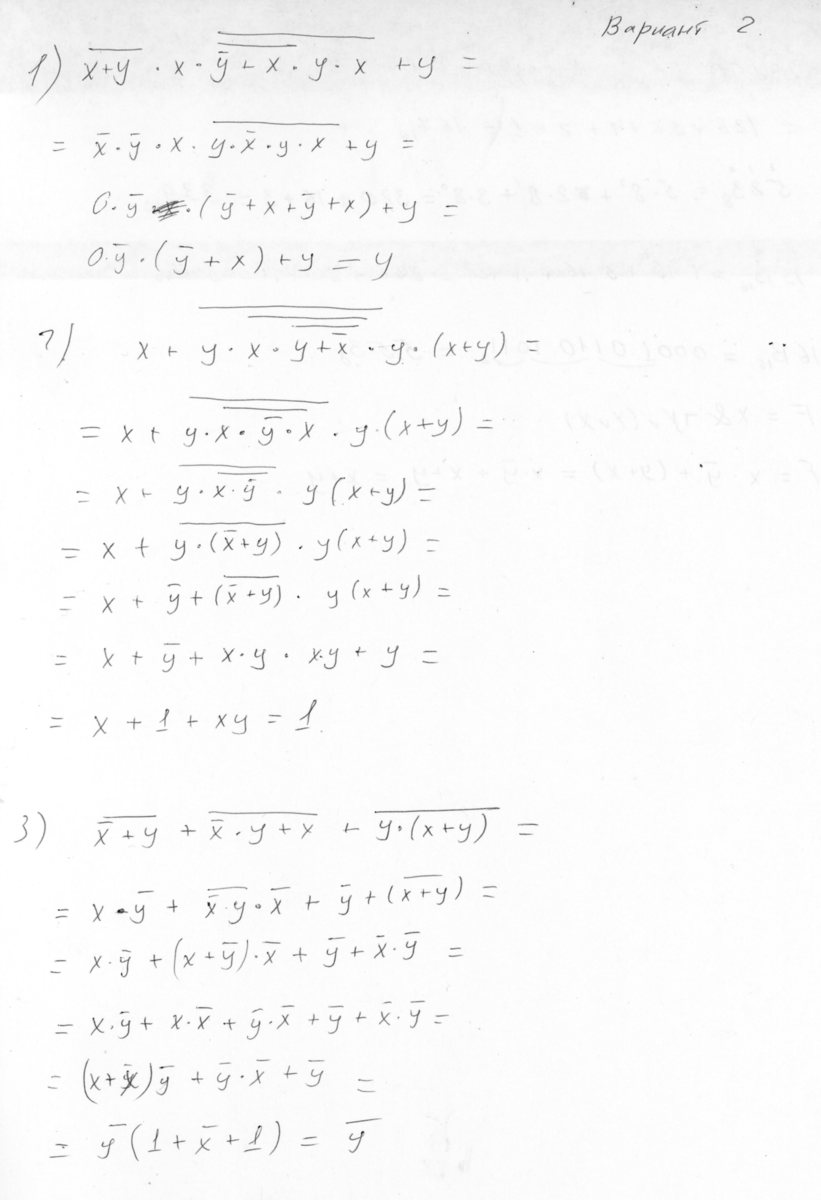 Вариант 2.
1) x̅+̅y̅ · x · y̅̅̅ ̅+̅ ̅x̅ ̅·̅ ̅y̅ ̅·̅ ̅x̅ + y =
= x̅ · y̅ · x · y̅ ̅·̅ ̅x̅̅ ̅·̅ ̅y̅ ̅·̅ ̅x̅ + y =
0 · y̅ · (y̅ + x + y̅ + x) + y =
0 · y̅ · (y̅ + x) + y = y
2) x + y · x · y + x̅ · y · (x+y) =
= x + y · x · y̅ · x · y · (x+y) =
= x + y · x · y̅ · y (x+y) =
= x + y · (x̅+y) · y (x+y) =
= x + y̅ + (x̅+y) · y (x+y) =
= x + y̅ + x · y · x·y + y =
= x + 1 + xy = 1
3) x̅ + y + x̅ · y + x + y · (x+y) =
= x · y̅ + x̅ · y · x̅ + y̅ + (x+y) =
= x · y̅ + (x + y̅) · x̅ + y̅ + x̅ · y̅ =
= x · y̅ + x · x̅ + y̅ · x̅ + y̅ + x̅ · y̅ =
= (x + x̅) y̅ + y̅ · x̅ + y̅ =
= y̅ (1 + x̅ + 1) = y̅